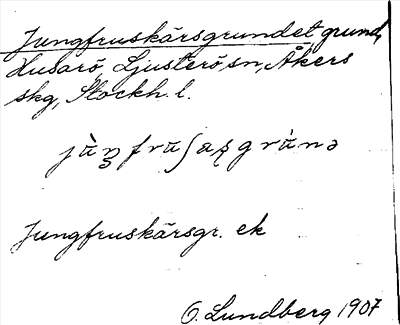 Jungfruskärsgrundet grund,
Husarö, Ljusterö sn, Åkers
skg, Stockh. l.
Jungfruskärsgr. ek
O. Lundberg 1907